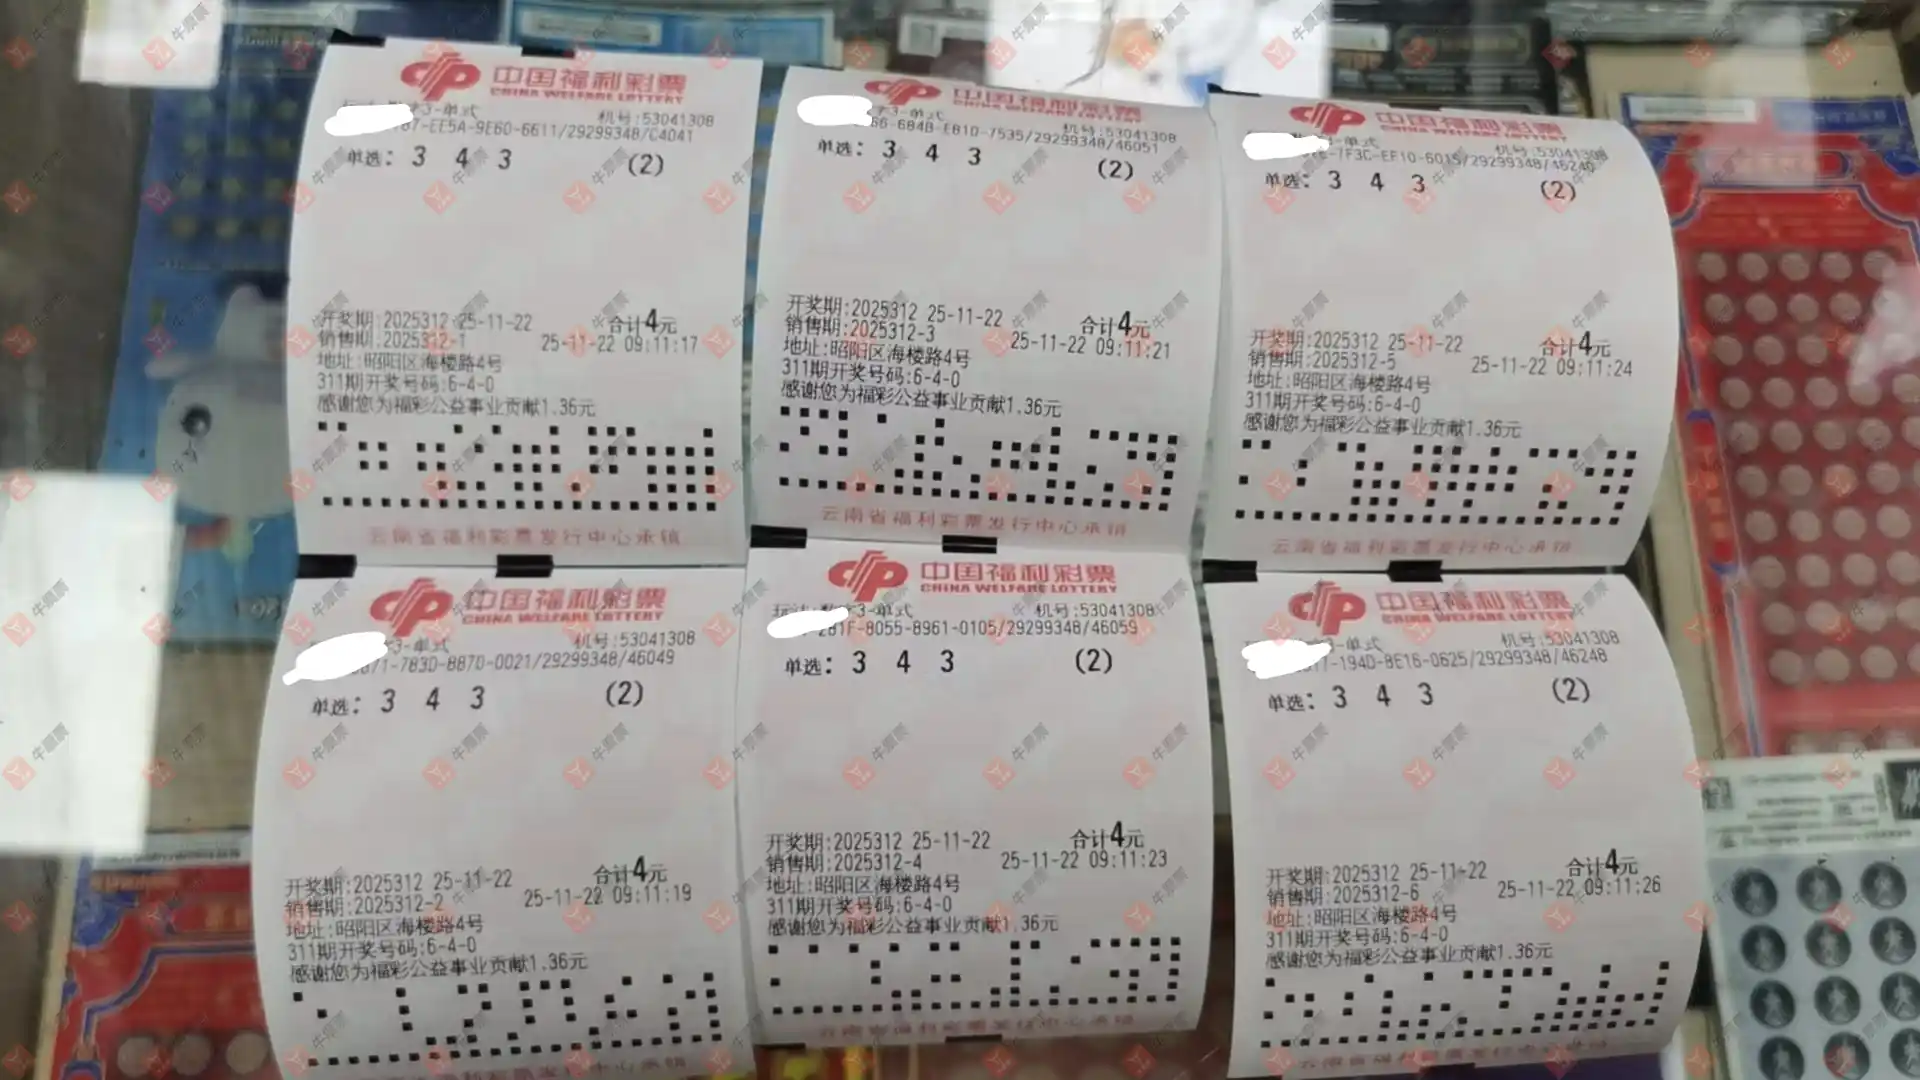 中国福利彩票
CHINA WELFARE LOTTERY
3-单式 机号:53041308
87-EE5A-9E60-6611/29299348/C4041
单选: 3 4 3 (2)
开奖期:2025312 25-11-22 合计4元
销售期:2025312-1 25-11-22 09:11:17
地址:昭阳区海楼路4号
311期开奖号码:6-4-0
感谢您为福彩公益事业贡献1.36元
云南省福利彩票发行中心承销
中国福利彩票
CHINA WELFARE LOTTERY
字3-单式 机号:53041308
66-684B-E810-7535/29299348/46051
单选: 3 4 3 (2)
开奖期:2025312 25-11-22 合计4元
销售期:2025312-3 25-11-22 09:11:21
地址:昭阳区海楼路4号
311期开奖号码:6-4-0
感谢您为福彩公益事业贡献1.36元
云南省福利彩票发行中心承销
中国福利彩票
CHINA WELFARE LOTTERY
-单式 机号:53041308
-7F3C-EF10-6015/29299348/46240
单选: 3 4 3 (2)
开奖期:2025312 25-11-22 合计4元
销售期:2025312-5 25-11-22 09:11:24
地址:昭阳区海楼路4号
311期开奖号码:6-4-0
感谢您为福彩公益事业贡献1.36元
云南省福利彩票发行中心承销
中国福利彩票
CHINA WELFARE LOTTERY
3-单式 机号:53041308
871-783D-8870-0021/29299348/46049
单选: 3 4 3 (2)
开奖期:2025312 25-11-22 合计4元
销售期:2025312-2 25-11-22 09:11:19
地址:昭阳区海楼路4号
311期开奖号码:6-4-0
感谢您为福彩公益事业贡献1.36元
中国福利彩票
CHINA WELFARE LOTTERY
3-单式 机号:53041308
-281F-8055-8961-0105/29299348/46059
单选: 3 4 3 (2)
开奖期:2025312 25-11-22 合计4元
销售期:2025312-4 25-11-22 09:11:23
地址:昭阳区海楼路4号
311期开奖号码:6-4-0
感谢您为福彩公益事业贡献1.36元
云南省福利彩票发行中心承销
中国福利彩票
CHINA WELFARE LOTTERY
3-单式 机号:53041308
-194D-8E16-0625/29299348/46248
单选: 3 4 3 (2)
开奖期:2025312 25-11-22 合计4元
销售期:2025312-6 25-11-22 09:11:26
地址:昭阳区海楼路4号
311期开奖号码:6-4-0
感谢您为福彩公益事业贡献1.36元
云南省福利彩票发行中心承销
牛票票